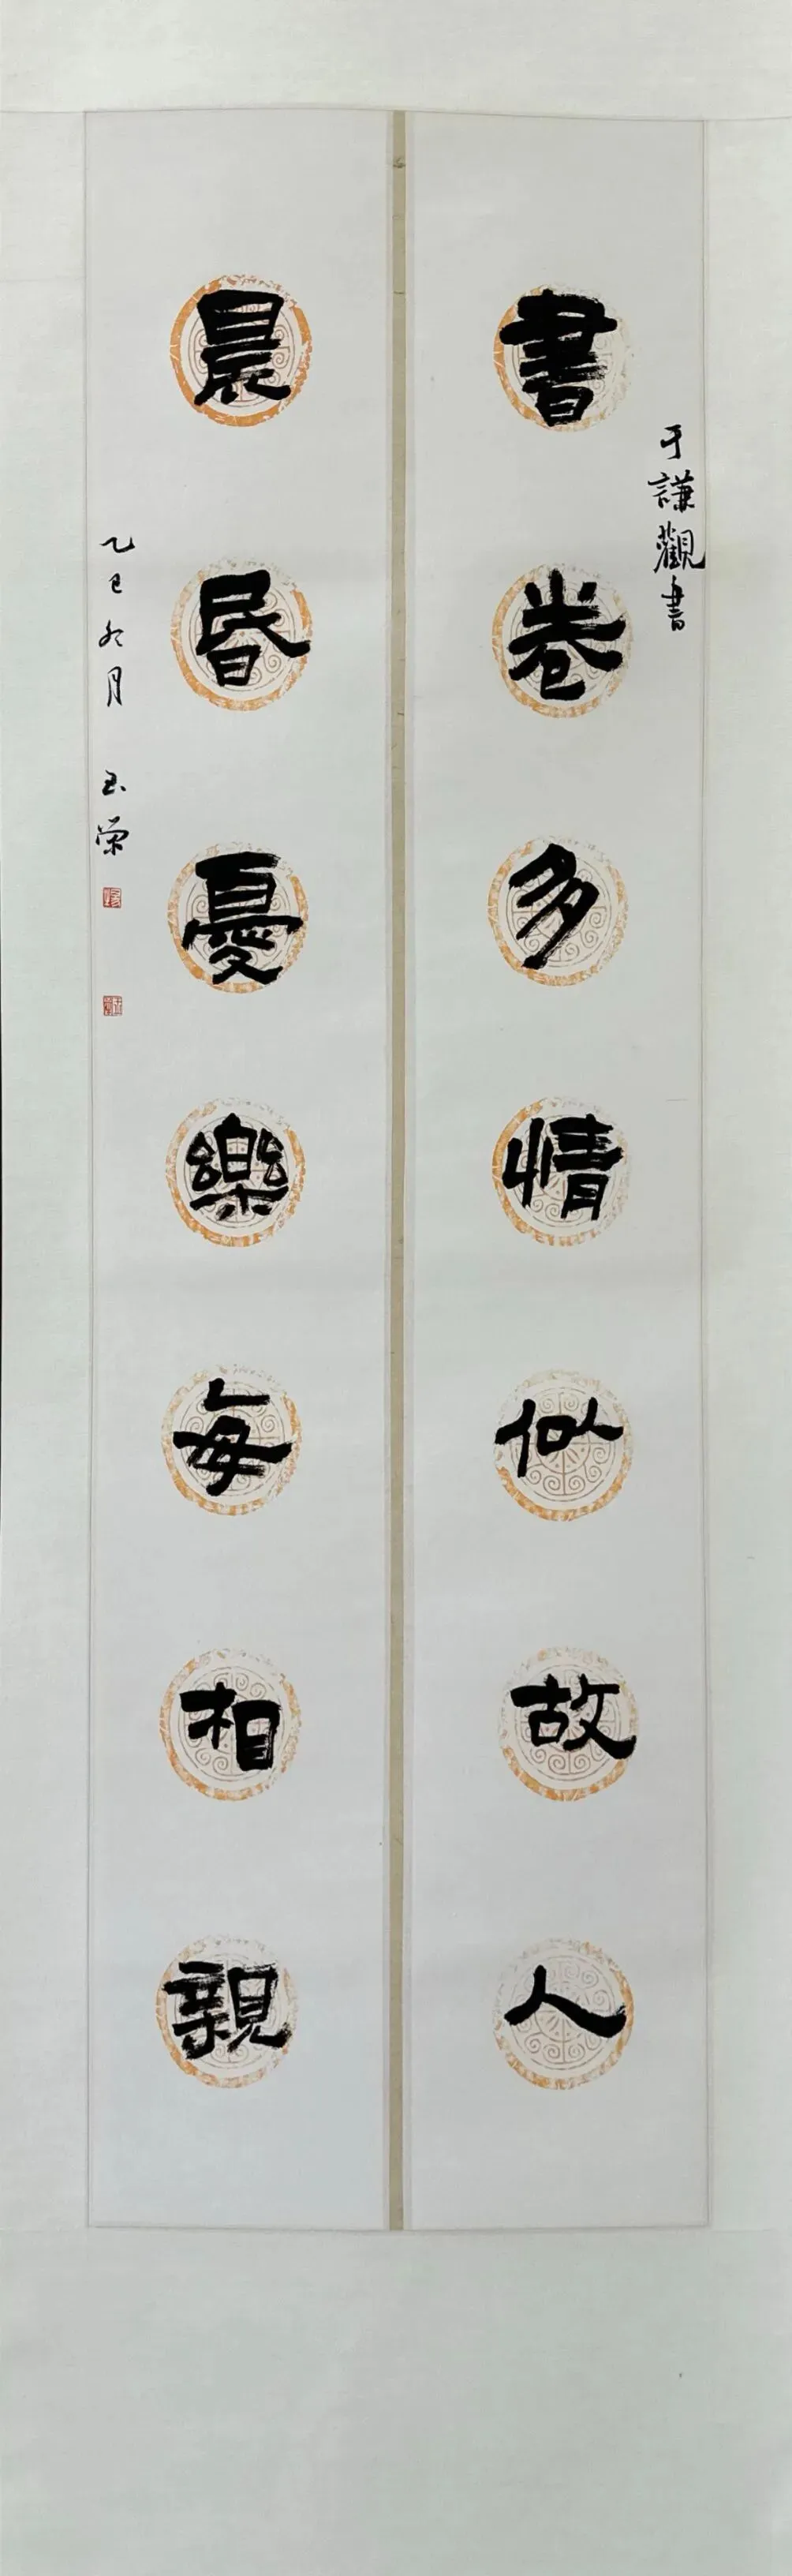 于謙觀書
書卷多情似故人
晨昏憂樂每相親
乙巳冬月 玉荣